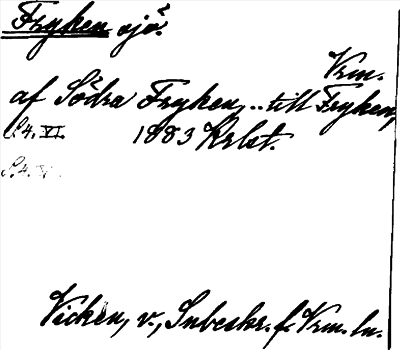 Fryken sjö.
Vrm.
af Södra Fryken, .. till Fryken,
S.4.VI. 1883 Krlst.
S.4.
Vicken, v., Inbeskr. f. Vrm. ln.